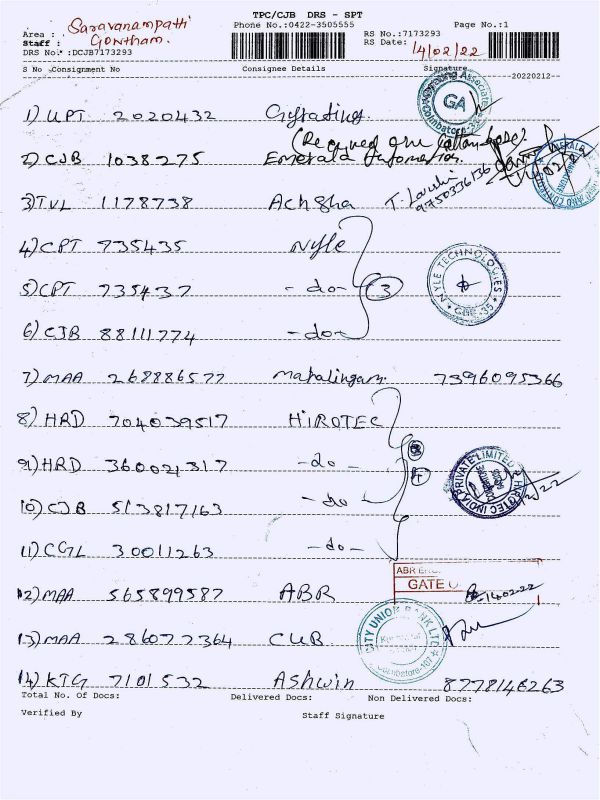 TPC/CJB DRS - SPT
Area : Saravanampatti Phone No.:0422-3505555 Page No.:1
Staff : Gowtham. RS No.:7173293
DRS No :DCJB7173293 RS Date: 14/02/22
S No Consignment No Consignee Details Signature
20220212--
1) UPT 2020432
GA
2) CJB 1038275 Emerald
3) TVL 1178738 9750336136
4) CPT 735435 Nyle
5) CPT 735437 -do- 3
NYLE TECHNOLOGIES
CBE-35
6) CJB 88111774 -do-
7) MAA 268886577 Mahalingam 7396095366
8) HRD 704039517 HIROTEC
9) HRD 360021317 -do-
HIROTEC INDIA PRIVATE LIMITED
10) CJB 513817163 -do-
11) CGL 30011263 -do-
ABR
GATE
12) MAA 565899587 ABR 14-02-22
13) MAA 286077364 CUB
CITY UNION BANK LTD
14) KTG 7101532 Ashwin 8778146263
Total No. Of Docs: Delivered Docs: Non Delivered Docs:
Verified By Staff Signature